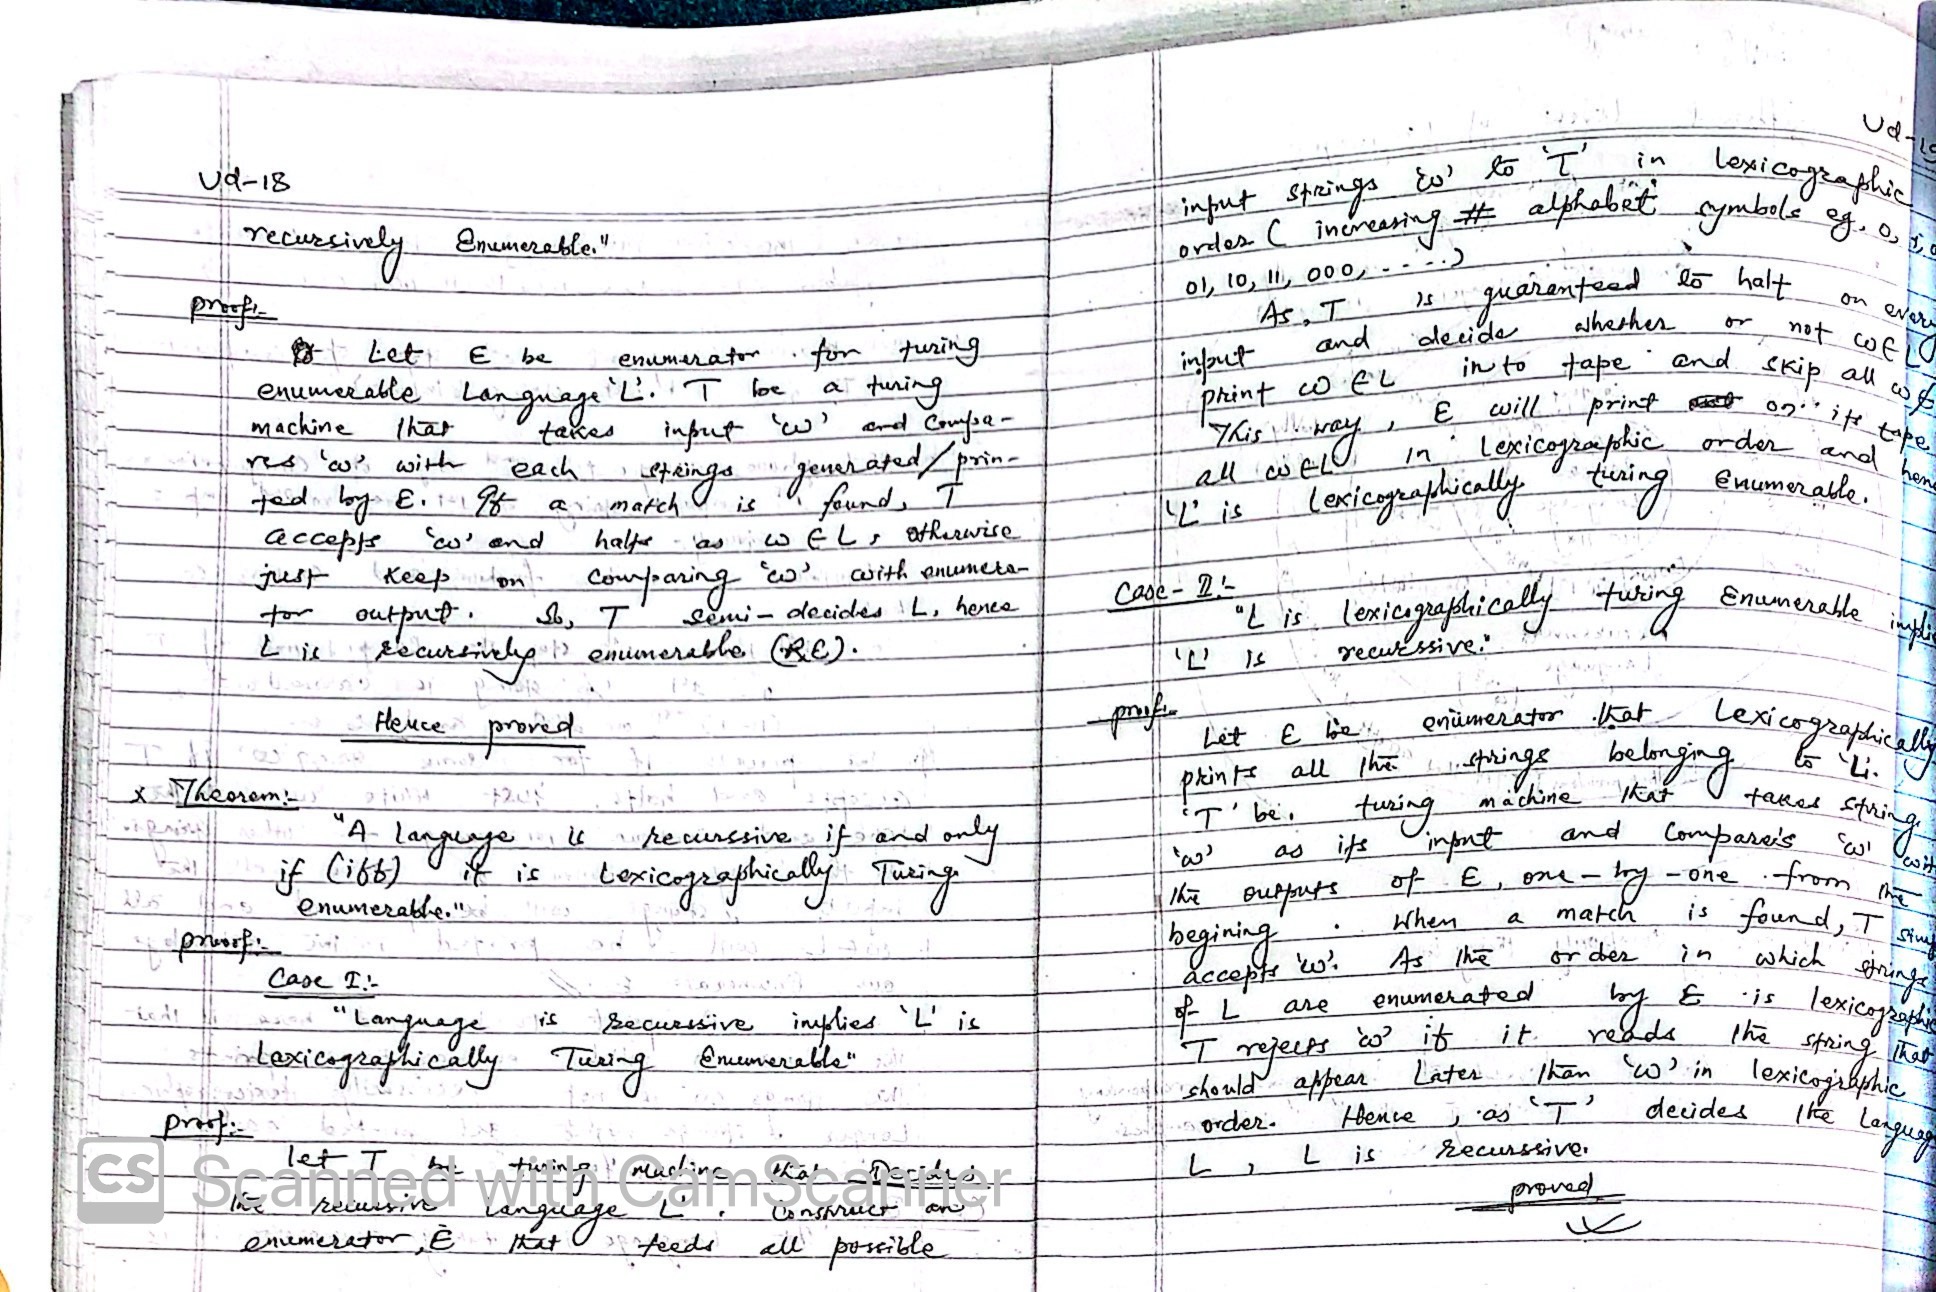 Ud-18
recursively Enumerable."
proof:-
Let E be enumerator for turing
enumerable Language 'L'. T be a turing
machine that takes input 'w' and compa-
res 'w' with each strings generated/prin-
ted by E. If a match is found, T
accepts 'w' and halts as w ∈ L, otherwise
just keep on comparing 'w' with enumera-
tor output. So, T semi-decides L, hence
L is recursively enumerable (RE).
Hence proved
x Theorem:-
"A language is recurssive if and only
if (iff) it is Lexicographically Turing
enumerable."
proof:-
Case I:-
"Language is recurssive implies 'L' is
Lexicographically Turing Enumerable"
proof:-
let T be turing machine that Decides
the recursive language L'. Construct an
enumerator, E that feeds all possible
CS Scanned with CamScanner
Ud-19
input strings 'w' to 'T' in lexicographic
order ( increasing # alphabet symbols eg. 0, 1,
01, 10, 11, 000, - - - -.)
As, T is guaranteed to halt on every
input and decide whether or not w ∈ L
print w ∈ L in to tape and skip all w ∉
This way, E will print on its tape
all w ∈ L in lexicographic order and
'L' is lexicographically turing Enumerable.
Case-II:-
"L is lexicographically turing Enumerable
'L' is recurssive."
proof:-
Let E be enumerator that Lexicographically
prints all the strings belonging to 'L'.
'T' be, turing machine that takes string
'w' as its input and compares 'w'
the outputs of E, one-by-one from the
begining. When a match is found, T
accepts 'w'. As the order in which strings
of L are enumerated by E is lexicographic
T rejects 'w' if it reads the string that
should appear Later than 'w' in lexicographic
order. Hence, as 'T' decides the Language
L, L is recurssive.
proved